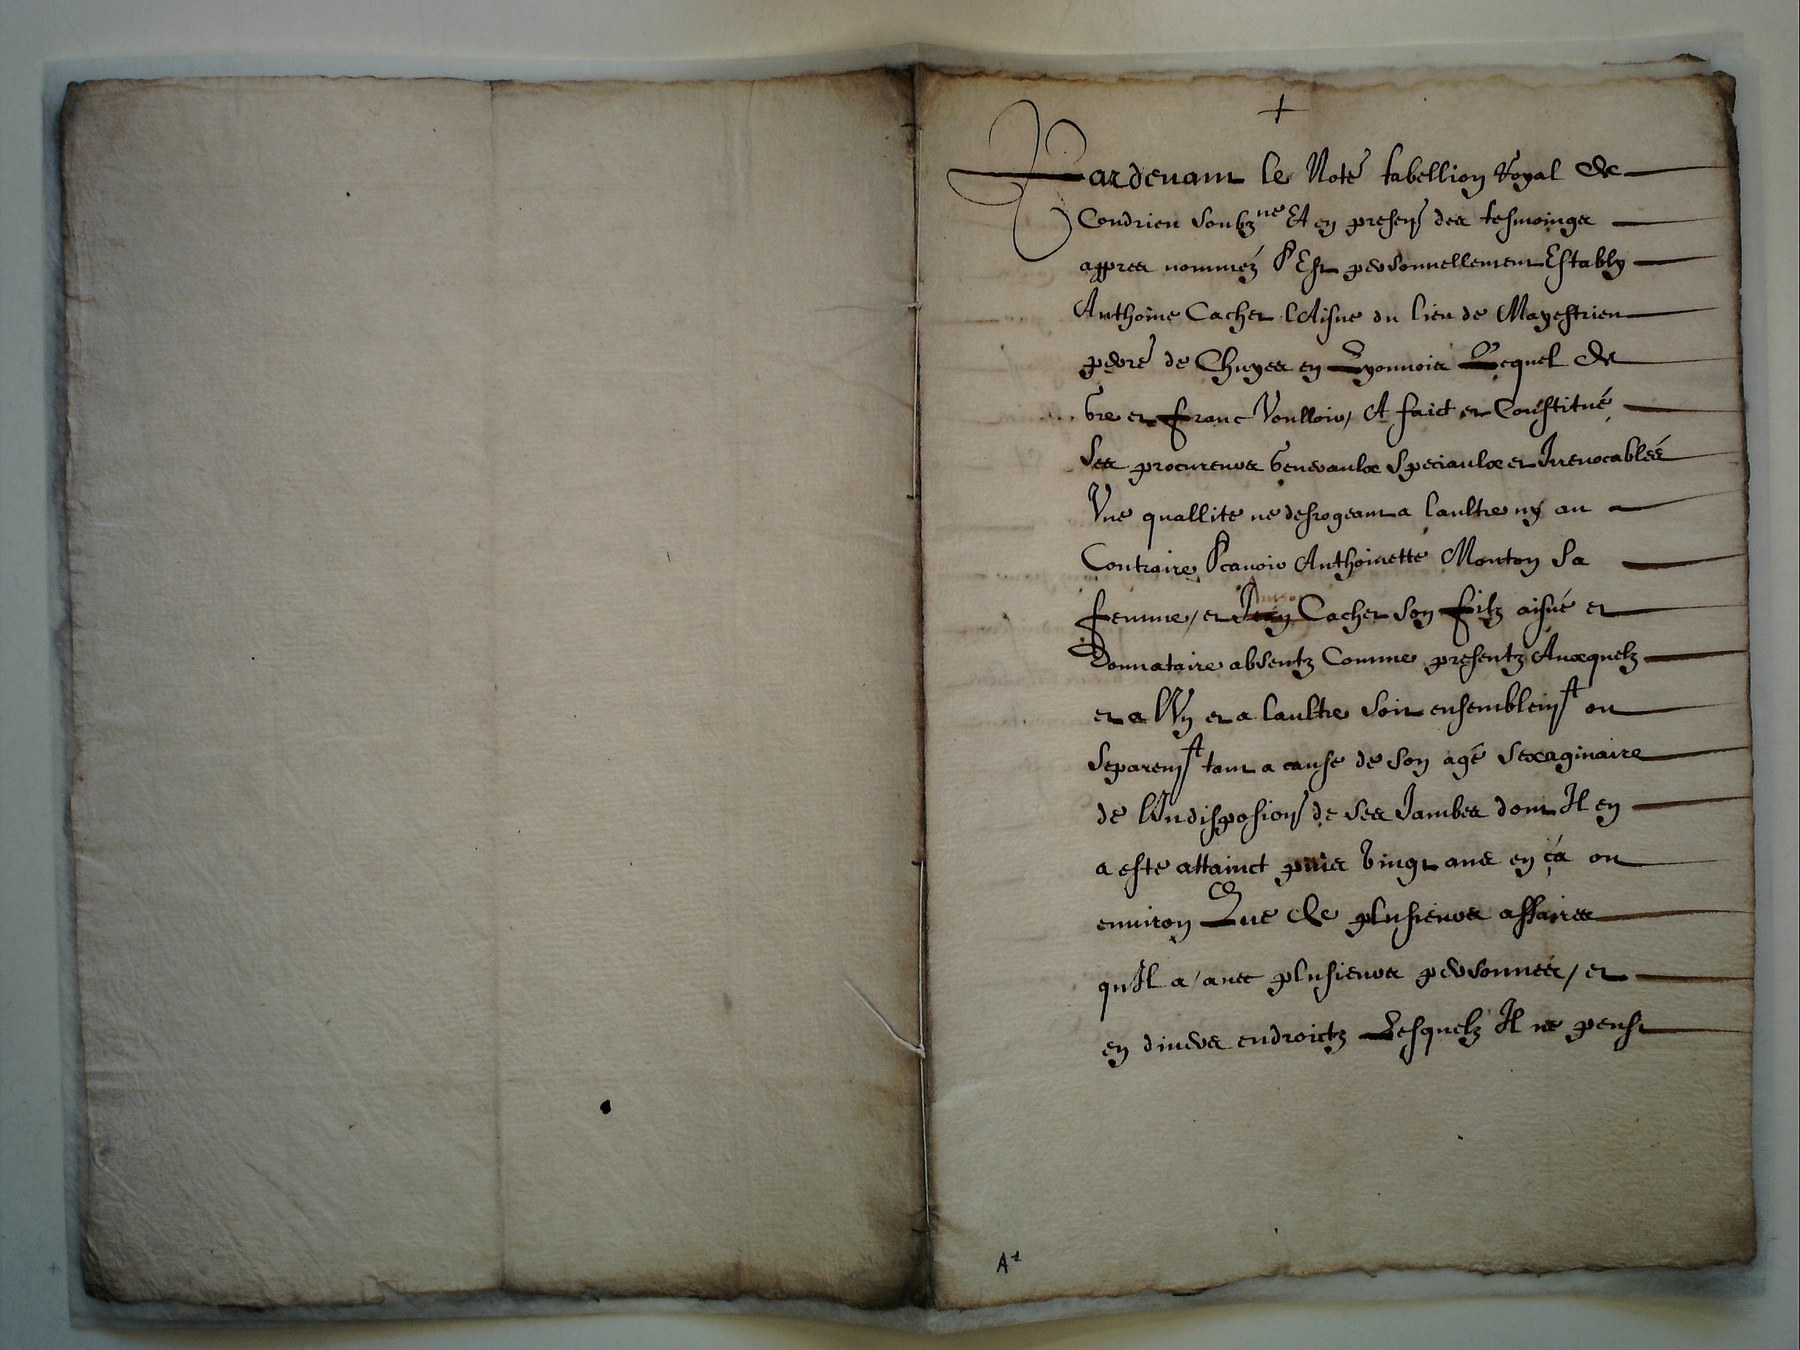 +
Pardevant le Note tabellion Royal de
Condrien soubz ne Et en presen des tesmoings
appres nommez S Est personnellement Estably
Anthoine Cachet l'Aisne du lieu de Mayestrien
pedre de Chuyes en Lyonnois Lequel de
Gre et franc Voulloir, A faict et Constitué
Ses procureurs Generaulx Speciaulx et Irrevocables
Vne quallite ne desrogeant a laultre ny au
Contraire Scavoir Anthoinette Monton sa
femme, et Jean Cachet son filz aisné et
Donnataire absentz Comme presentz Auxquelz
et a lVn et a laultre soit ensemblement ou
separemt tant a cause de son agé sexaginaire
de lIndisposion de ses Jambes dont Il en
a este attainct puis vingt ans en ça ou
environ Que de plusieurs affaires
quIl a, avec plusieurs personnes, et
en divers endroictz Lesquelz Il ne peust
A1